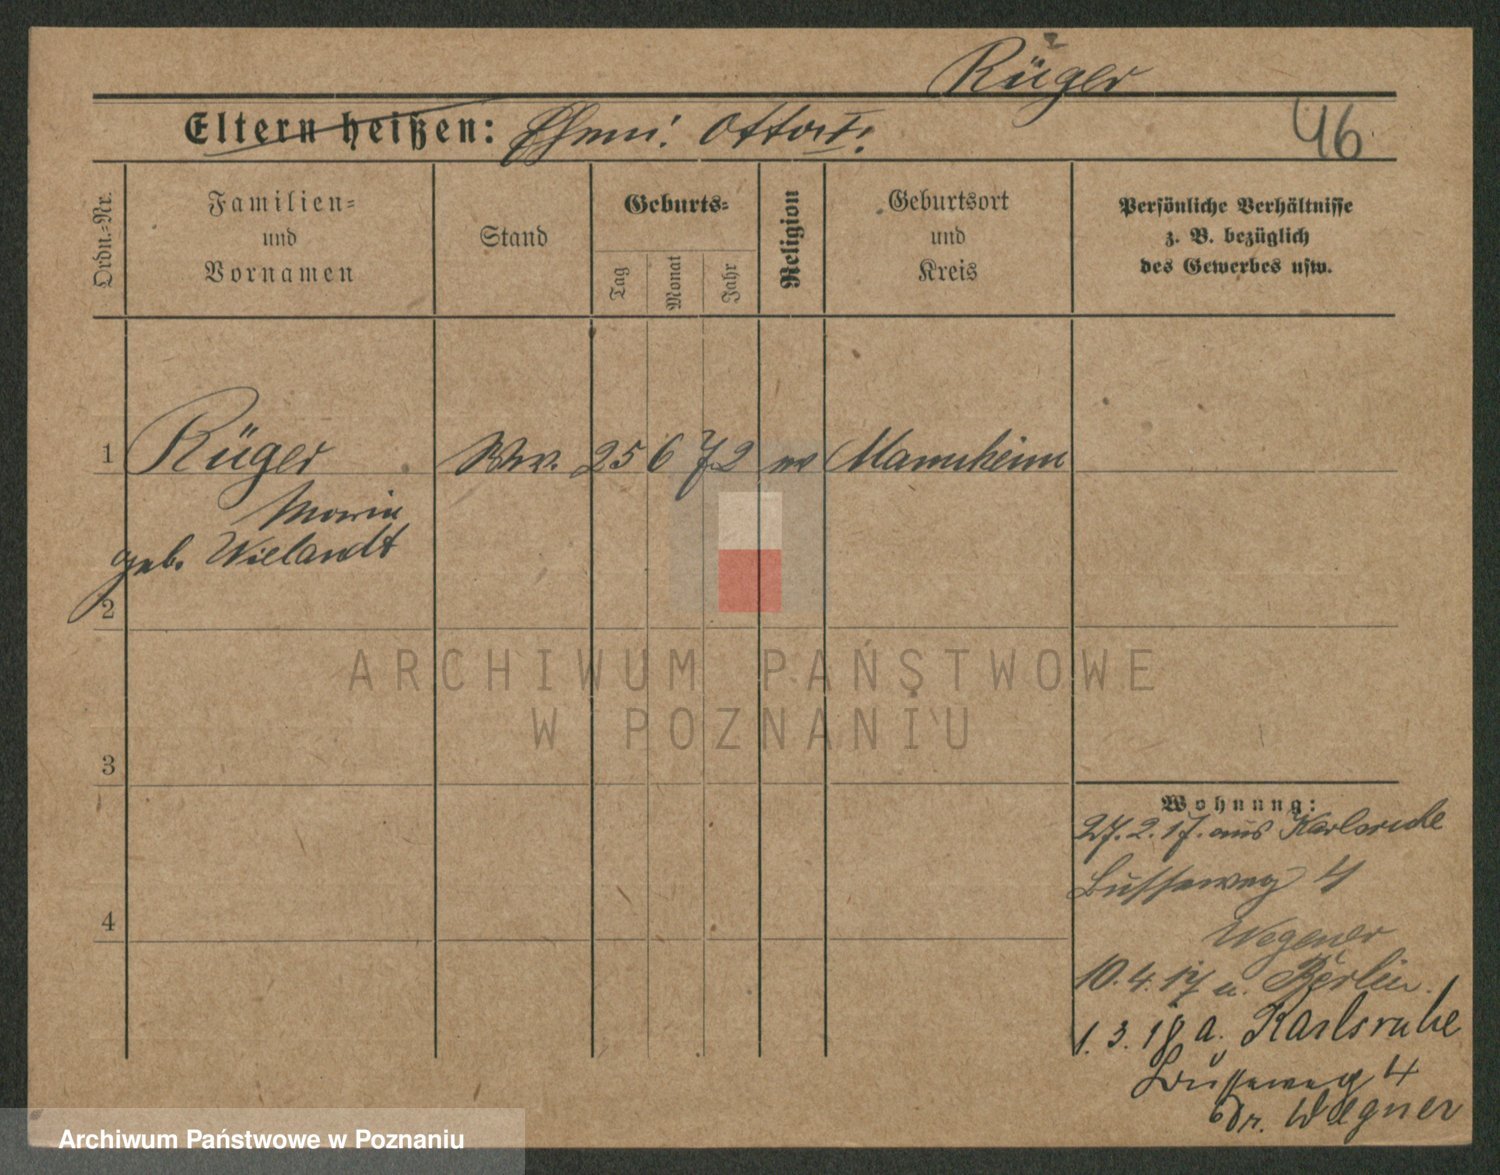 Rüger
Eltern heißen: Ehem: Otto †.
46
Ordn.-Nr.
Familien-
und
Vornamen
Stand
Geburts-
Tag
Monat
Jahr
Religion
Geburtsort
und
Kreis
Persönliche Verhältnisse
z. B. bezüglich
des Gewerbes usw.
1 Rüger Ww. 25 6 72 ev Mannheim
Maria
geb. Wielandt
2
3
4
Wohnung:
27.2.17. aus Karlsruhe
Busseweg 4
Wegener
10.4.17 n. Berlin.
1.3.18 a. Karlsruhe
Busseweg 4
b/Dr. Wegner
ARCHIWUM PAŃSTWOWE
W POZNANIU
Archiwum Państwowe w Poznaniu